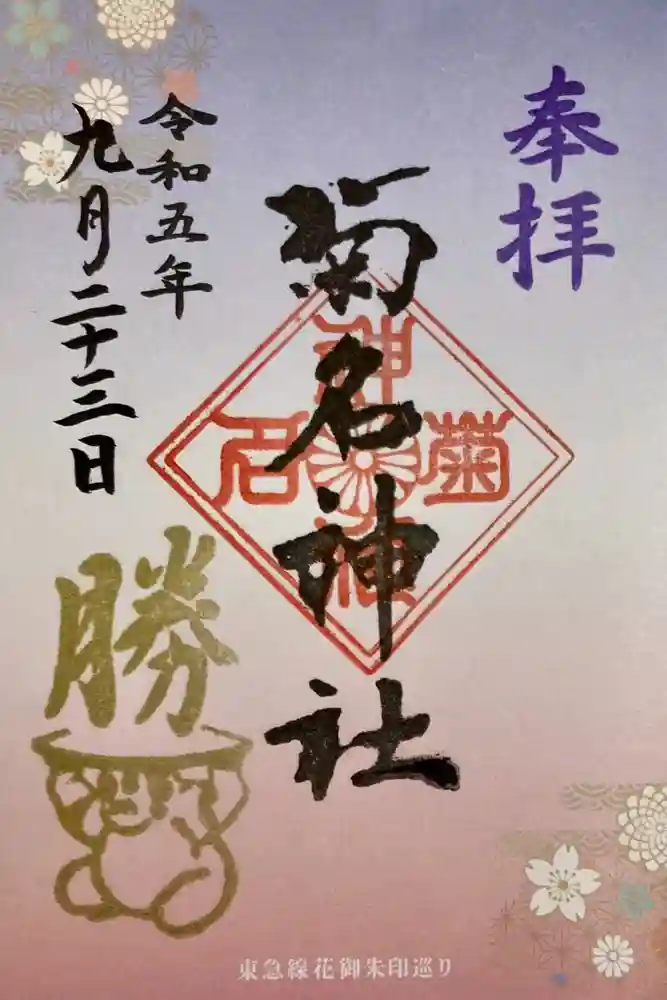 奉拝
菊名神社
菊名神社
令和五年
九月二十三日
勝
東急線花御朱印巡り